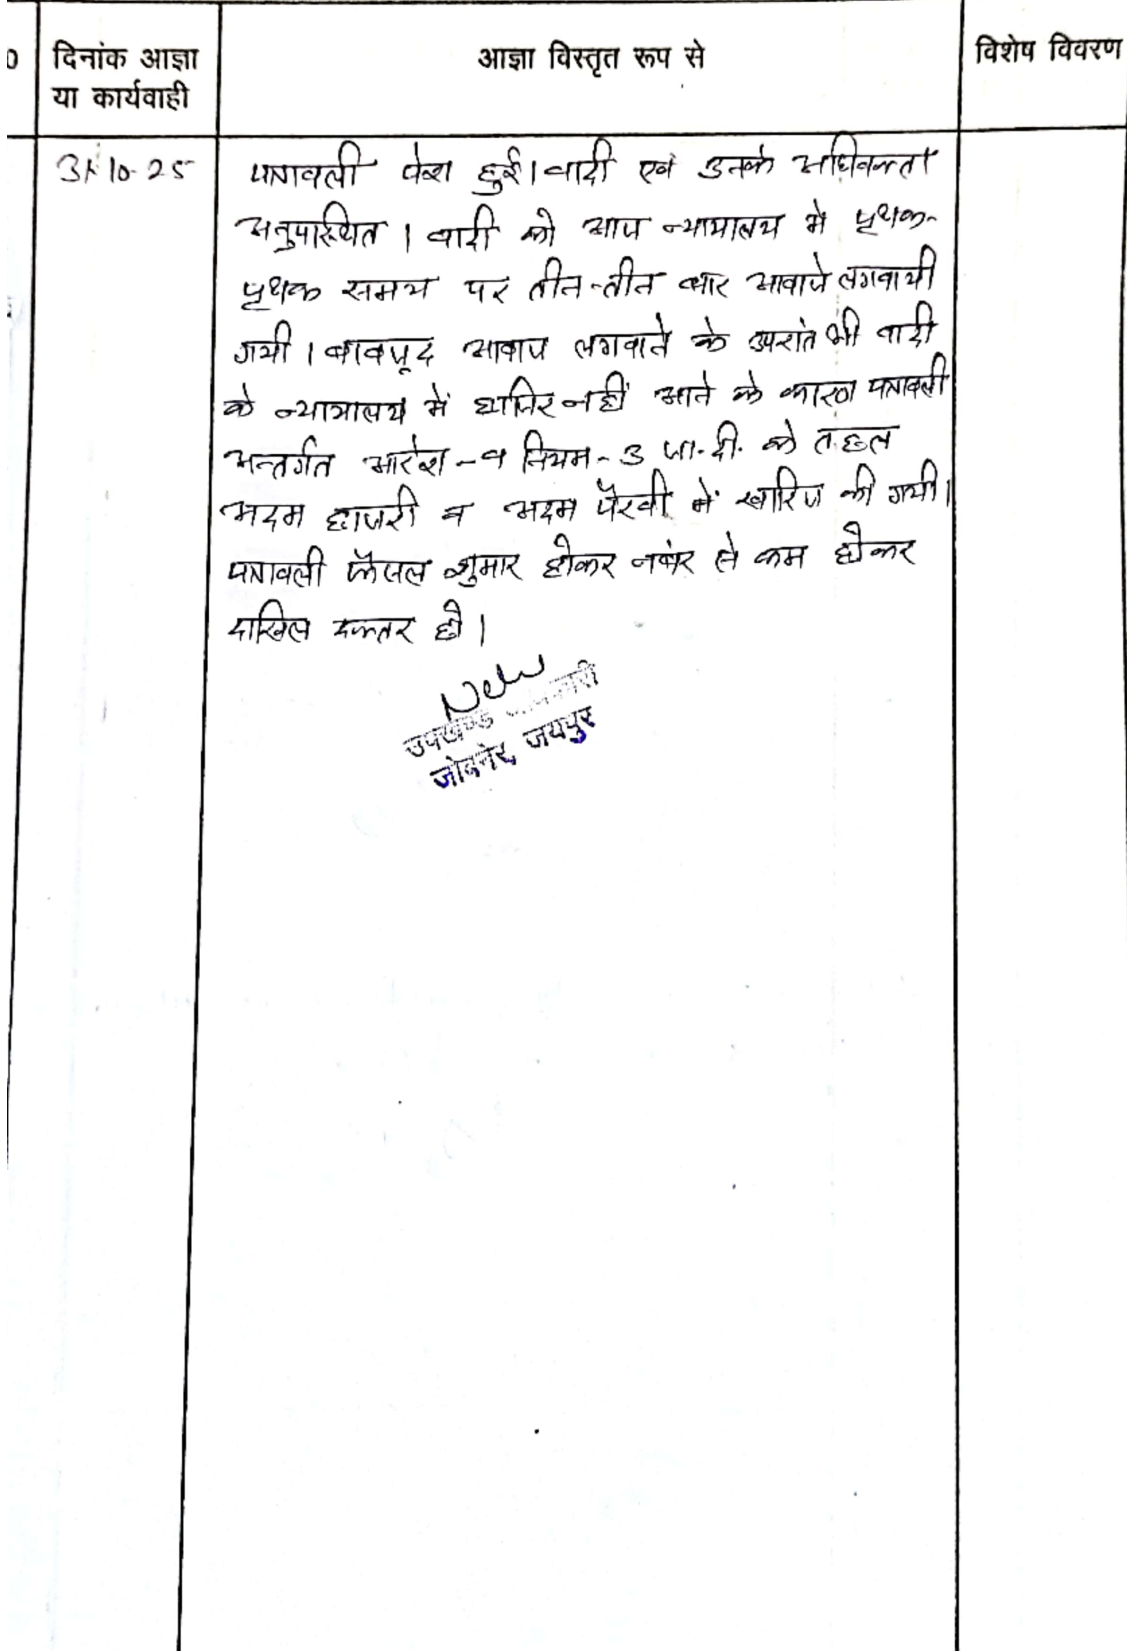 दिनांक आज्ञा
या कार्यवाही
आज्ञा विस्तृत रूप से
विशेष विवरण
31-10-25
पत्रावली पेश हुई। वादी एवं उनके अधिवक्ता
अनुपस्थित। वादी को आज न्यायालय में पृथक-
पृथक समय पर तीन-तीन बार आवाजे लगवायी
गयी। बावजूद आवाज लगवाने के उपरांत भी वादी
के न्यायालय में हाजिर नहीं आने के कारण पत्रावली
अन्तर्गत आदेश-9 नियम-3 जा.दी. के तहत
अदम हाजरी व अदम पैरवी में खारिज की गयी।
पत्रावली फैसल शुमार होकर नंबर से कम होकर
दाखिल दफ्तर हो।
उपखण्ड
जोबनेर, जयपुर